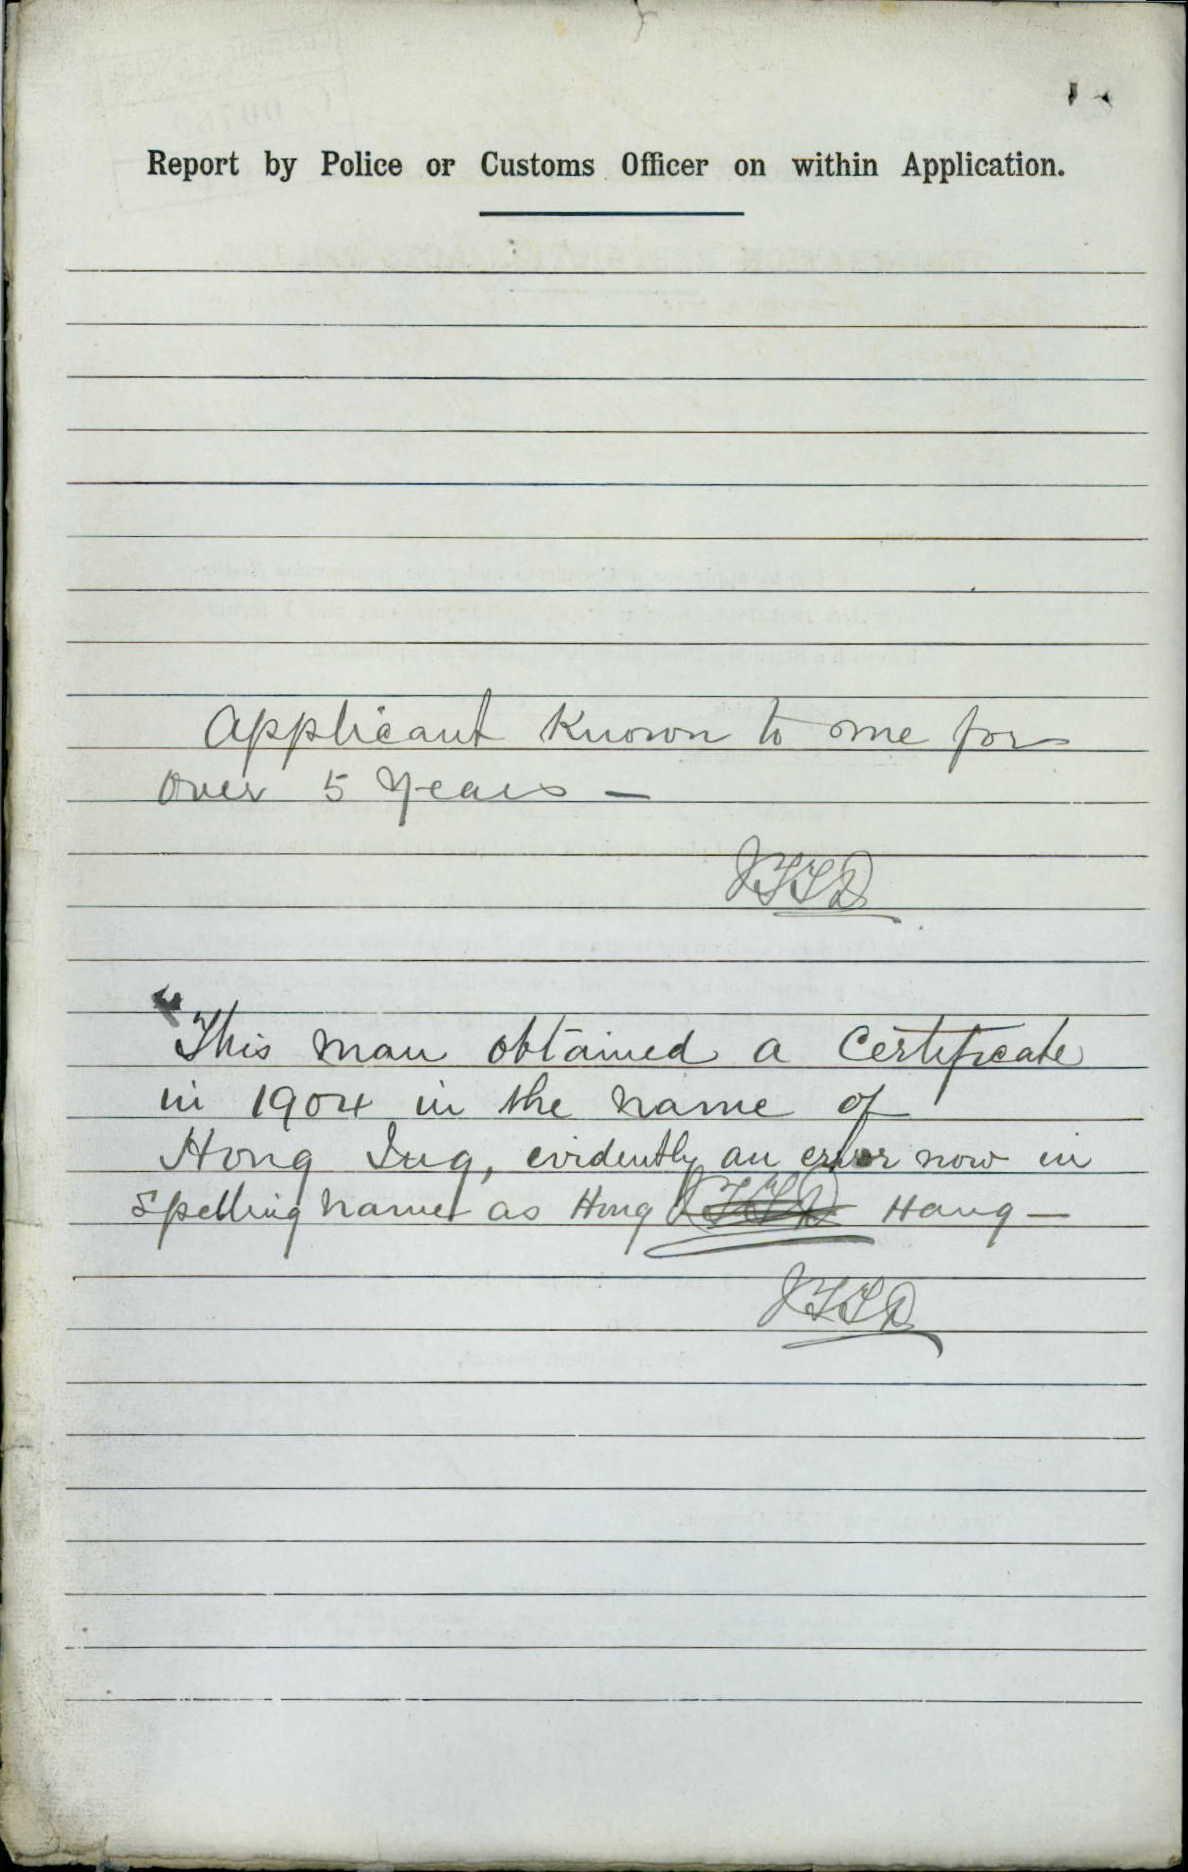 Report by Police or Customs Officer on within Application.
Applicant known to me for
over 5 years —
This man obtained a Certificate
in 1904 in the name of
Hong Sug, evidently an error now in
Spelling name as Hong Hang —